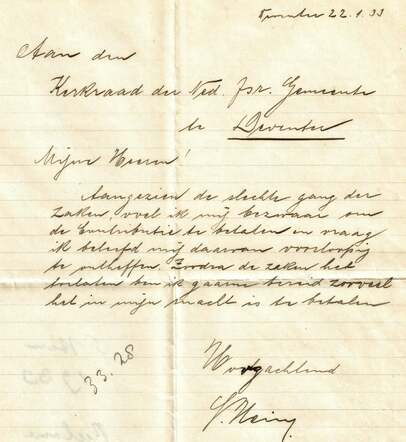 Deventer 22.1.33
Aan den
Kerkraad der Ned. Isr. Gemeente
te Deventer
Mijne Heeren!
Aangezien de slechte gang der
zaken, voel ik mij bezwaar om
de Contributie te betalen en vraag
ik beleefd mij daarvan voorloopig
te ontheffen. Zoodra de zaken het
toelaten ben ik gaarne bereid zooveel
het in mijn macht is te betalen
Hoogachtend
33.28